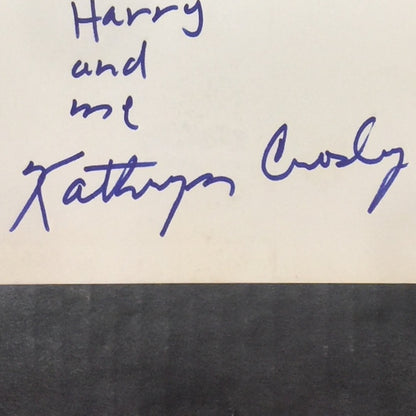 Harry
and
me
Kathryn Crosby